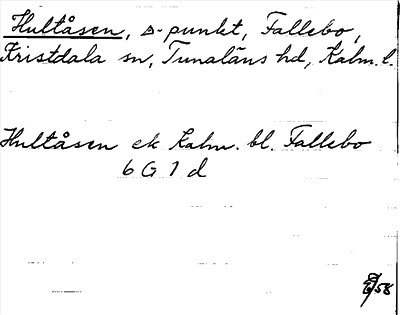 Hultåsen, Δ-punkt, Fallebo,
Kristdala sn, Tunaläns hd, Kalm. l.
Hultåsen ek Kalm. bl. Fallebo
6 G 1 d
58